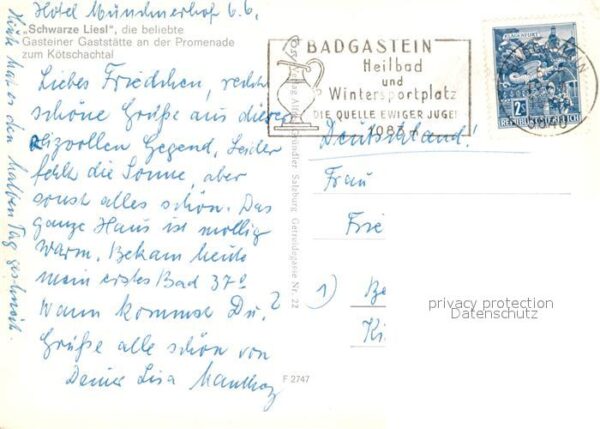 Hotel Münchnerhof 6.6.
„Schwarze Liesl", die beliebte
Gasteiner Gaststätte an der Promenade
zum Kötschachtal
Liebes Friedchen, recht
schöne Grüße aus dieser
reizvollen Gegend. Leider
fehlt die Sonne, aber
sonst alles schön. Das
ganze Haus ist mollig
warm. Bekam heute
mein erstes Bad 37°
Wann kommst Du?
Grüße alle schön von
Deiner Lisa
Hüte hat es den halben Tag geschneit.
F 2747
Salzburg, Getreidegasse Nr. 22
BADGASTEIN
Heilbad
und
Wintersportplatz
DIE QUELLE EWIGER JUGEND
KLAGENFURT
2 S
REPUBLIK ÖSTERREICH
Deutschland!
Frau
Frie
1) Be
Ki
privacy protection
Datenschutz